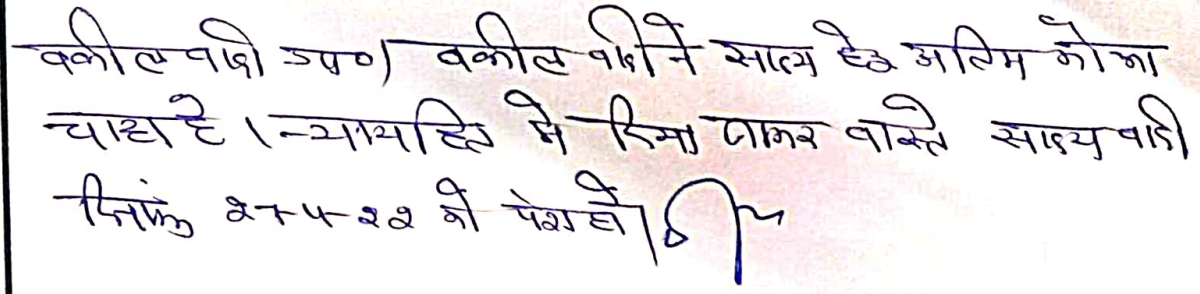 वकील वादी उप०। वकील वादी ने साक्ष्य हेतु अंतिम मौका
चाहा है। न्यायहित में दिया जाकर वास्ते साक्ष्य वादी
दिनांक को पेश हो।